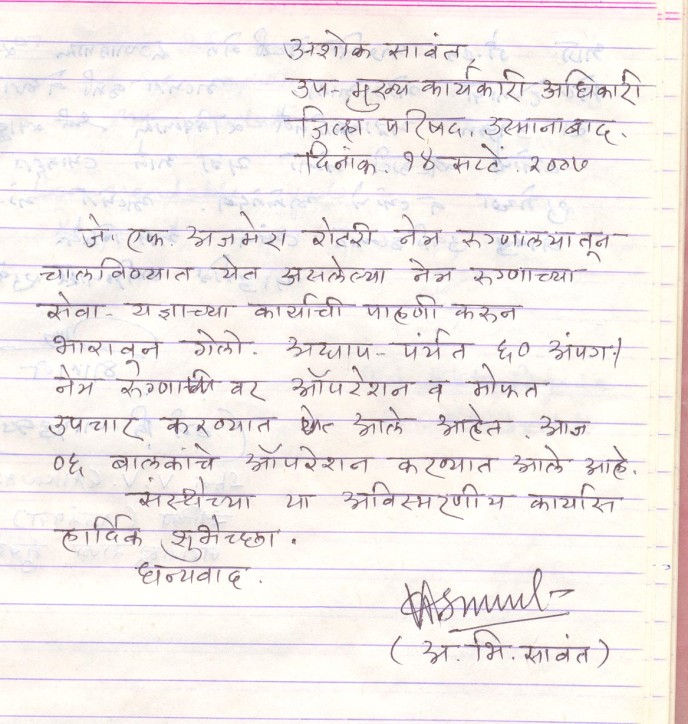 अशोक सावंत,
उप-मुख्य कार्यकारी अधिकारी
जिल्हा परिषद, उस्मानाबाद.
दिनांक. १४ सप्टें २००७
जे. एफ अजमेरा रोटरी नेत्र रुग्णालयातून
चालविण्यात येत असलेल्या नेत्र रुग्णाच्या
सेवा- यज्ञाच्या कार्याची पाहणी करून
भारावून गेलो. अद्याप-पर्यंत ६० अंपग/
नेत्र रुग्णांची वर ऑपरेशन व मोफत
उपचार करण्यात येत आले आहेत. आज
०६ बालकांचे ऑपरेशन करण्यात आले आहे.
संस्थेच्या या अविस्मरणीय कार्यास
हार्दिक शुभेच्छा.
धन्यवाद.
( अ. भि. सावंत )